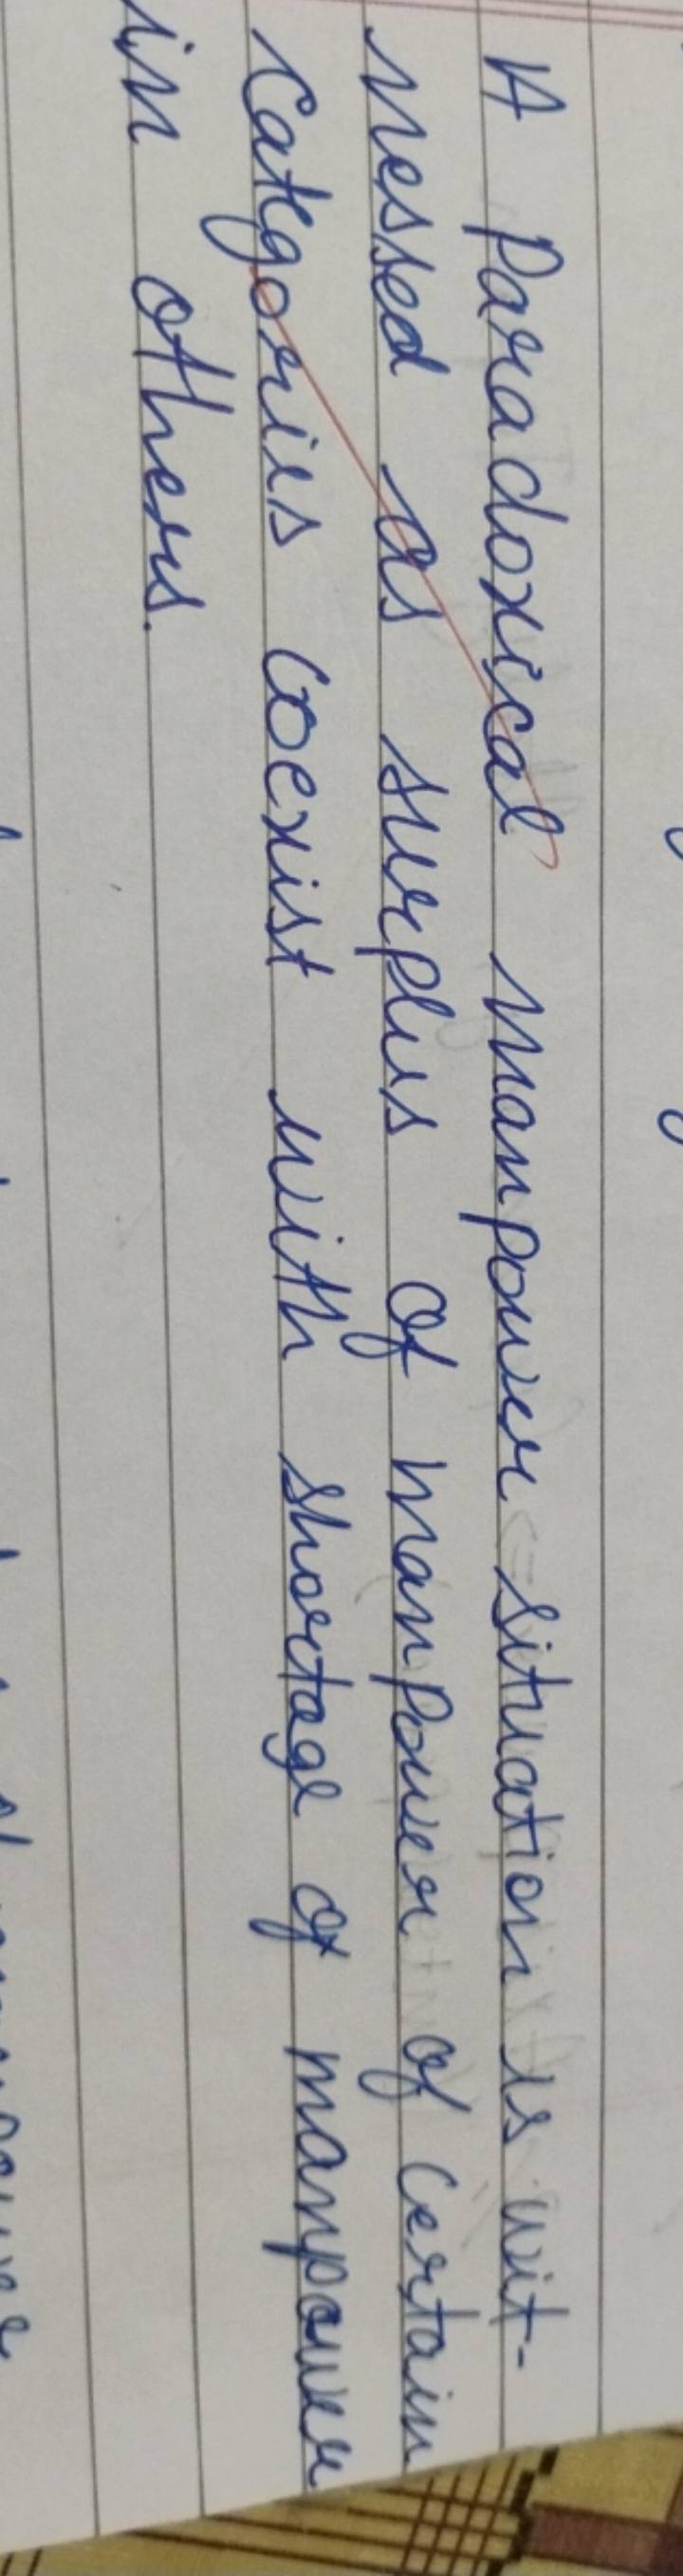 A Paradoxical manpower situation is wit-
nessed as surplus of manpower of certain
Categories coexist with shortage of manpower
in others.